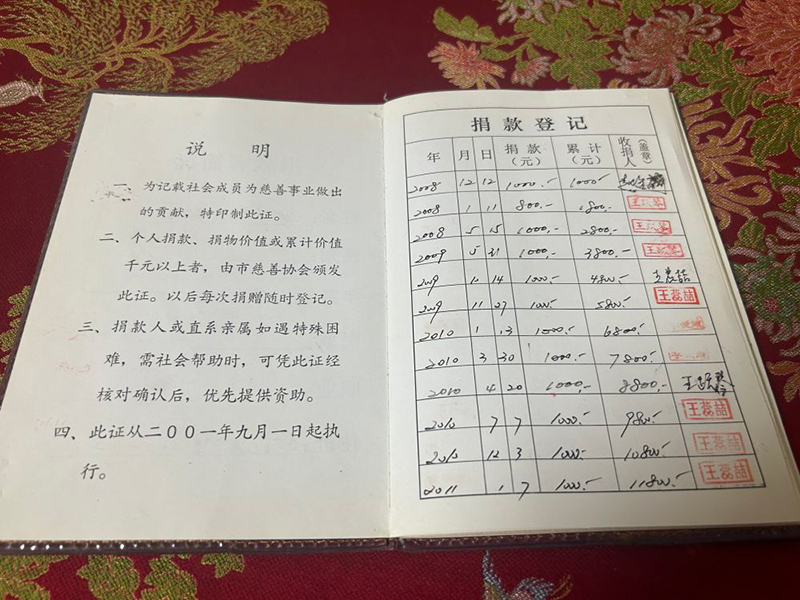 说 明
一、为记载社会成员为慈善事业做出
的贡献，特印制此证。
二、个人捐款、捐物价值或累计价值
千元以上者，由市慈善协会颁发
此证。以后每次捐赠随时登记。
三、捐款人或直系亲属如遇特殊困
难，需社会帮助时，可凭此证经
核对确认后，优先提供资助。
四、此证从二〇〇一年九月一日起执
行。
捐款登记
年 月 日 捐款（元） 累计（元） 收捐人（盖章）
2008 12 12 1000.- 1000.-
2008 1 11 800.- 1800.-
2008 5 15 1000.- 2800.-
2009 5 31 1000.- 3800.-
2009 14 1000.- 4800.- 王蕊喆
2009 11 27 1000.- 5800.- 王蕊喆
2010 1 13 1000.- 6800.-
2010 3 30 1000.- 7800.-
2010 4 20 1000.- 8800.-
2010 7 7 1000.- 9800.- 王蕊喆
2010 12 3 1000.- 10800.- 王蕊喆
2011 1 7 1000.- 11800.- 王蕊喆